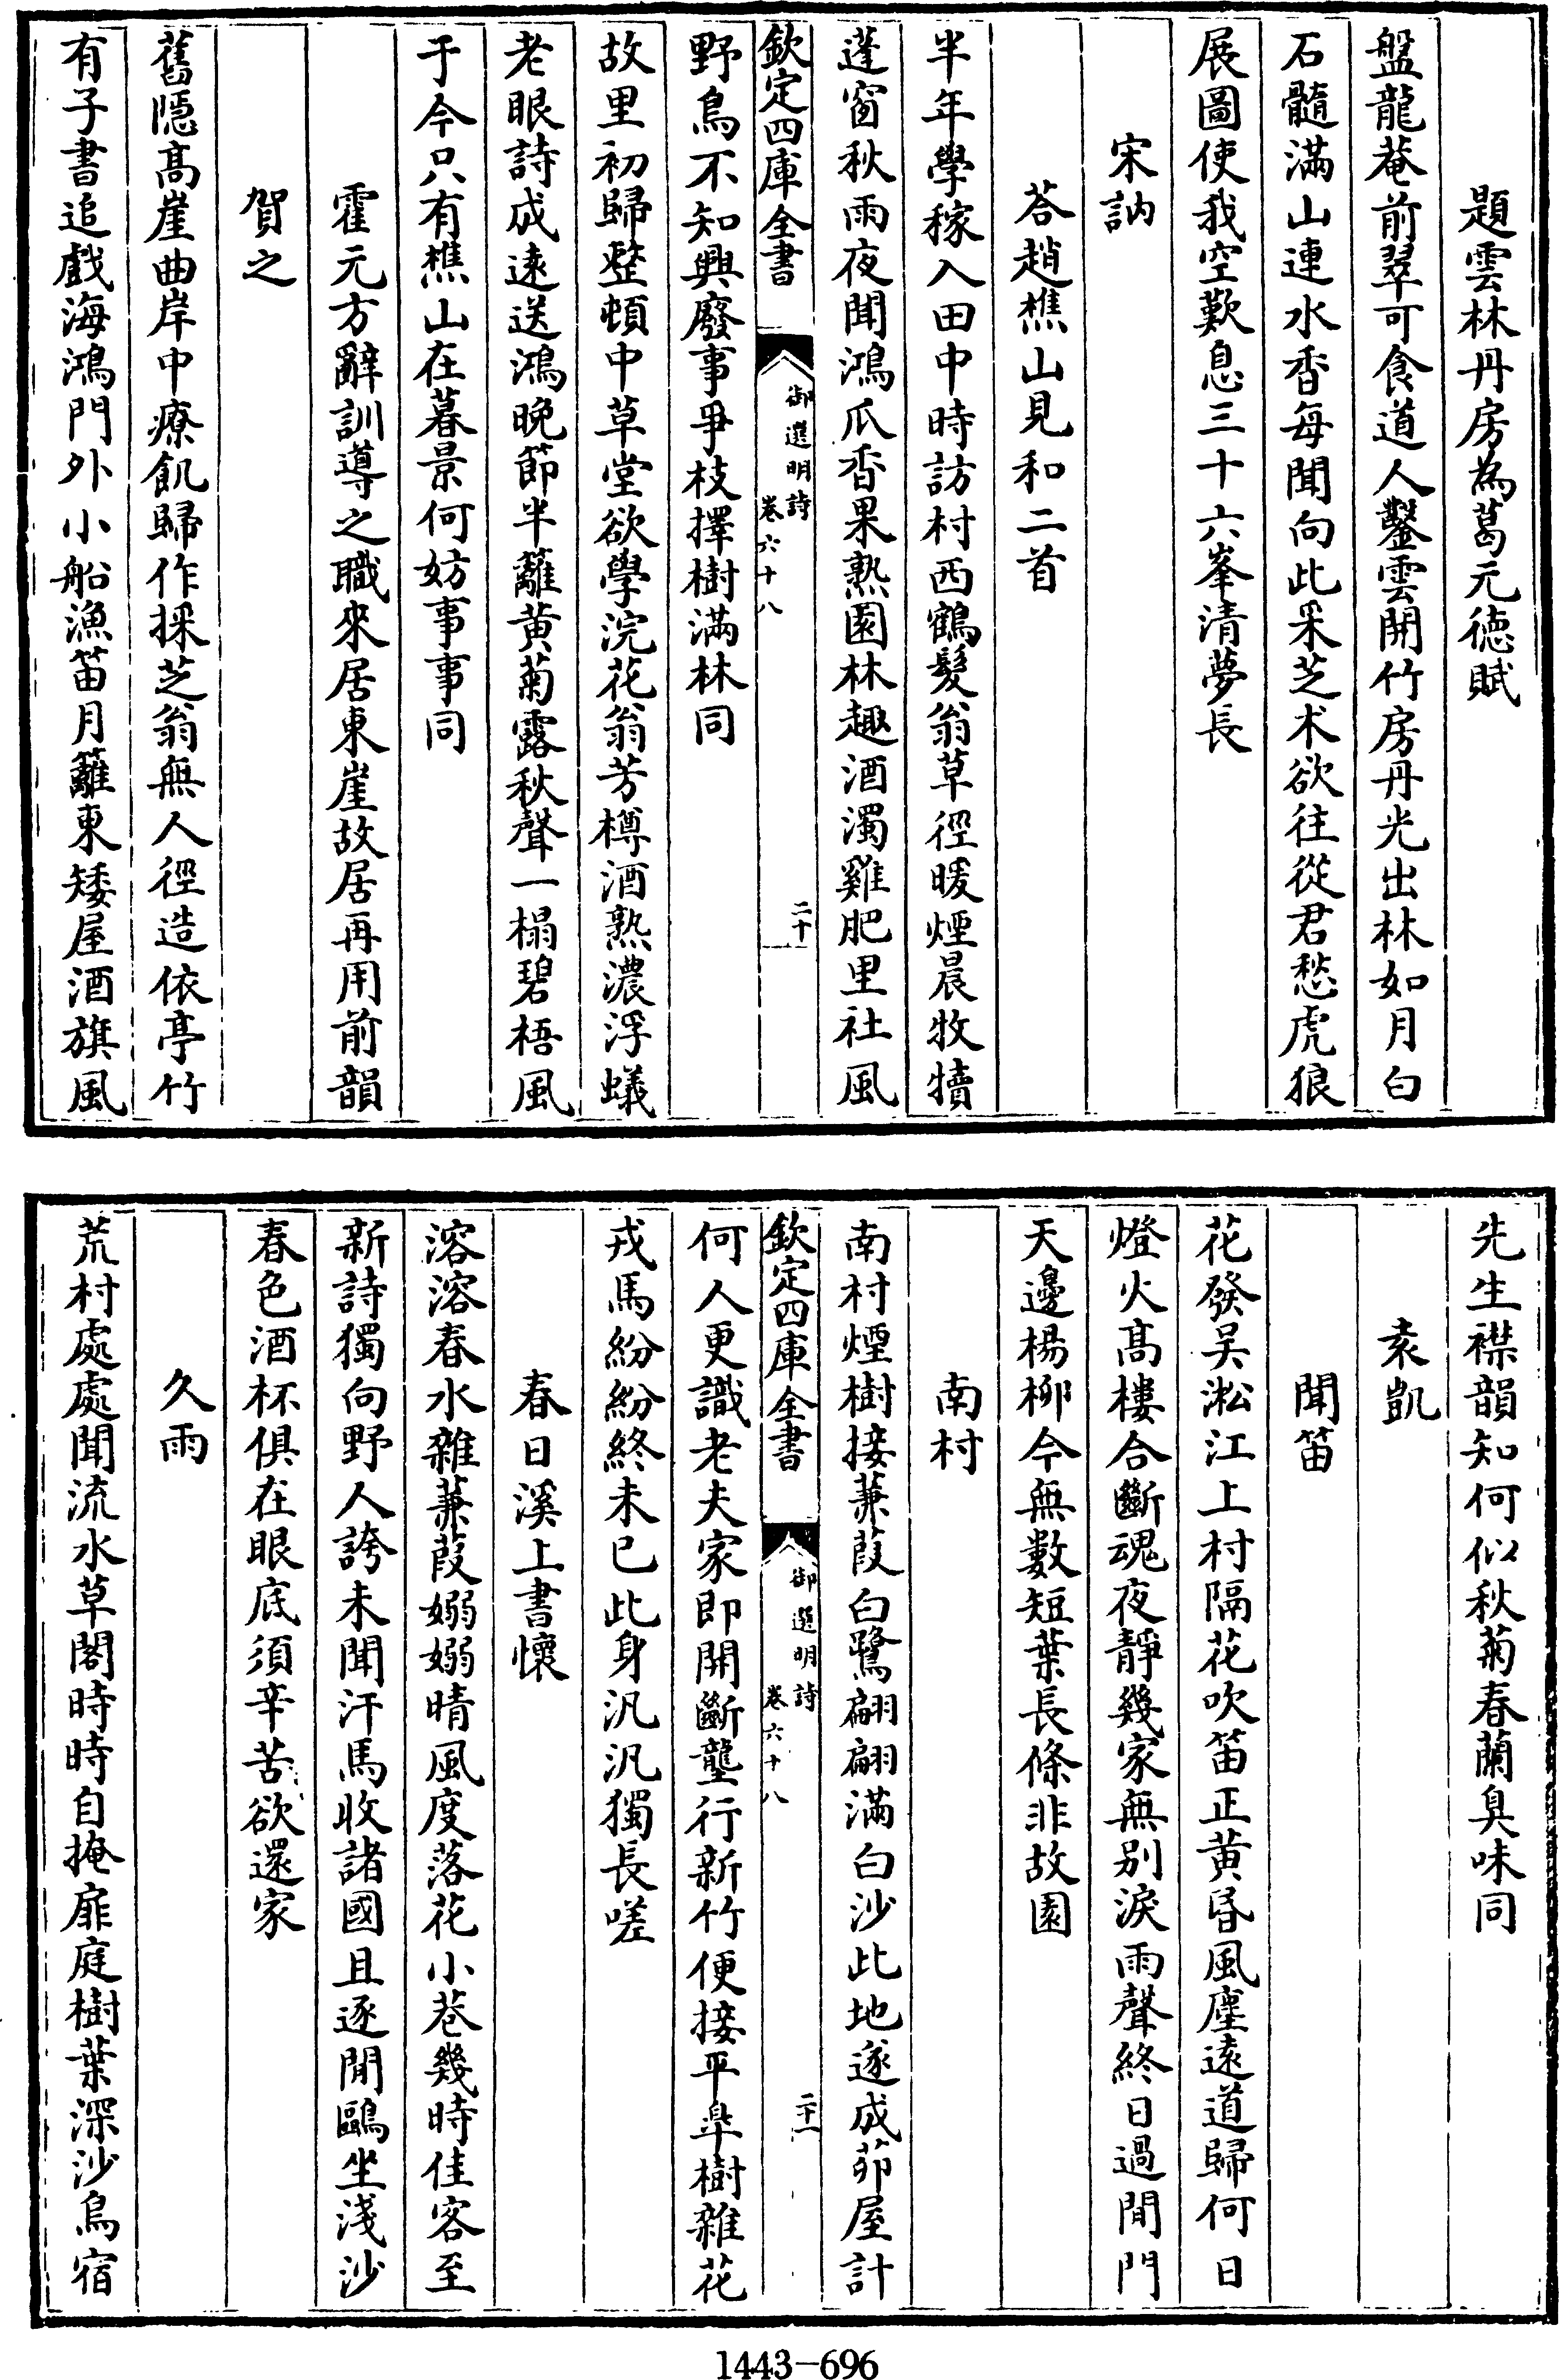 題雲林丹房為葛元徳賦
盤龍菴前翠可食道人鑿雲開竹房丹光出林如月白
石髓滿山連水香每聞向此采芝术欲往從君愁虎狼
展圖使我空歎息三十六峯清夢長
宋訥
荅趙樵山見和二首
半年學稼入田中時訪村西鶴髮翁草徑暖煙晨牧犢
蓬窗秋雨夜聞鴻瓜香果熟園林趣酒濁雞肥里社風
欽定四庫全書
御選明詩
卷六十八
二十
野鳥不知興廢事爭枝擇樹滿林同
故里初歸整頓中草堂欲學浣花翁芳樽酒熟濃浮蟻
老眼詩成遠送鴻晚節半籬黃菊露秋聲一榻碧梧風
于今只有樵山在暮景何妨事事同
霍元方辭訓導之職來居東崖故居再用前韻
賀之
舊隱高崖曲岸中療飢歸作採芝翁無人徑造依亭竹
有子書追戲海鴻門外小船漁笛月籬東矮屋酒旗風
先生襟韻知何似秋菊春蘭臭味同
袁凱
聞笛
花發吴淞江上村隔花吹笛正黃昏風塵遠道歸何日
燈火高樓合斷魂夜靜幾家無别淚雨聲終日過閒門
天邊楊柳今無數短葉長條非故園
南村
南村煙樹接蒹葭白鷺翩翩滿白沙此地遂成茆屋計
欽定四庫全書
御選明詩
卷六十八
二十一
何人更識老夫家即開斷壟行新竹便接平臯樹雜花
戎馬紛紛終未已此身汎汎獨長嗟
春日溪上書懷
溶溶春水雜蒹葭嫋嫋晴風度落花小巷幾時佳客至
新詩獨向野人誇未聞汗馬收諸國且逐閒鷗坐淺沙
春色酒杯俱在眼底須辛苦欲還家
久雨
荒村處處聞流水草閣時時自掩扉庭樹葉深沙鳥宿
1443-696